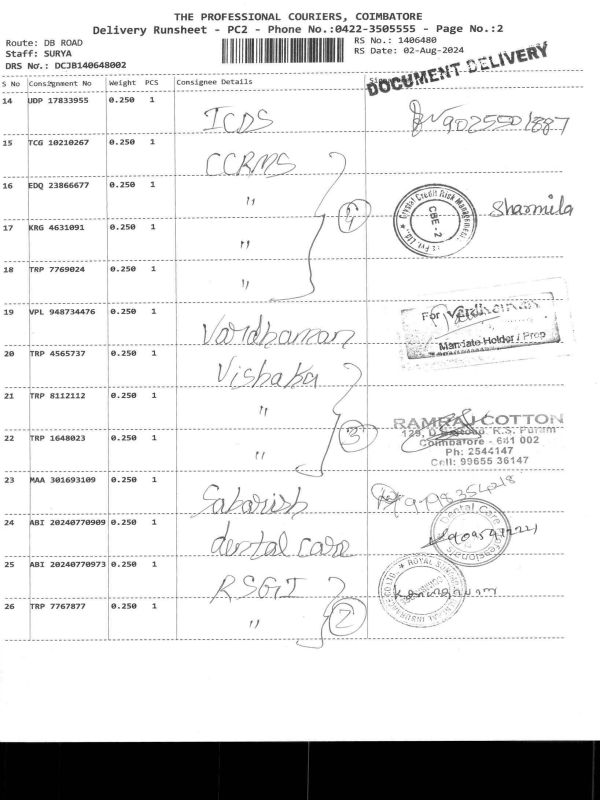 THE PROFESSIONAL COURIERS, COIMBATORE
Delivery Runsheet - PC2 - Phone No.:0422-3505555 - Page No.:2
Route: DB ROAD
Staff: SURYA
DRS No.: DCJB140648002
RS No.: 1406480
RS Date: 02-Aug-2024
DOCUMENT DELIVERY
S No Consignment No Weight PCS Consignee Details
14 UDP 17833955 0.250 1 ICDS
15 TCG 10210267 0.250 1 CCRMS
16 EDQ 23866677 0.250 1 "
Crystal Credit Risk Management
CBE - 2
Sharmila
17 KRG 4631091 0.250 1 "
4
18 TRP 7769024 0.250 1 "
19 VPL 948734476 0.250 1 Vardhaman
For Vardhaman
Mandate Holder / Prop
20 TRP 4565737 0.250 1 Vishaka
21 TRP 8112112 0.250 1 "
22 TRP 1648023 0.250 1 "
3
RAMRAJ COTTON
R.S. Puram
Coimbatore - 641 002
Ph: 2544147
Cell: 99655 36147
23 MAA 301693109 0.250 1 Sabarish
24 ABI 20240770909 0.250 1 dental care
Dental Care
25 ABI 20240770973 0.250 1 RSGI
26 TRP 7767877 0.250 1 "
2